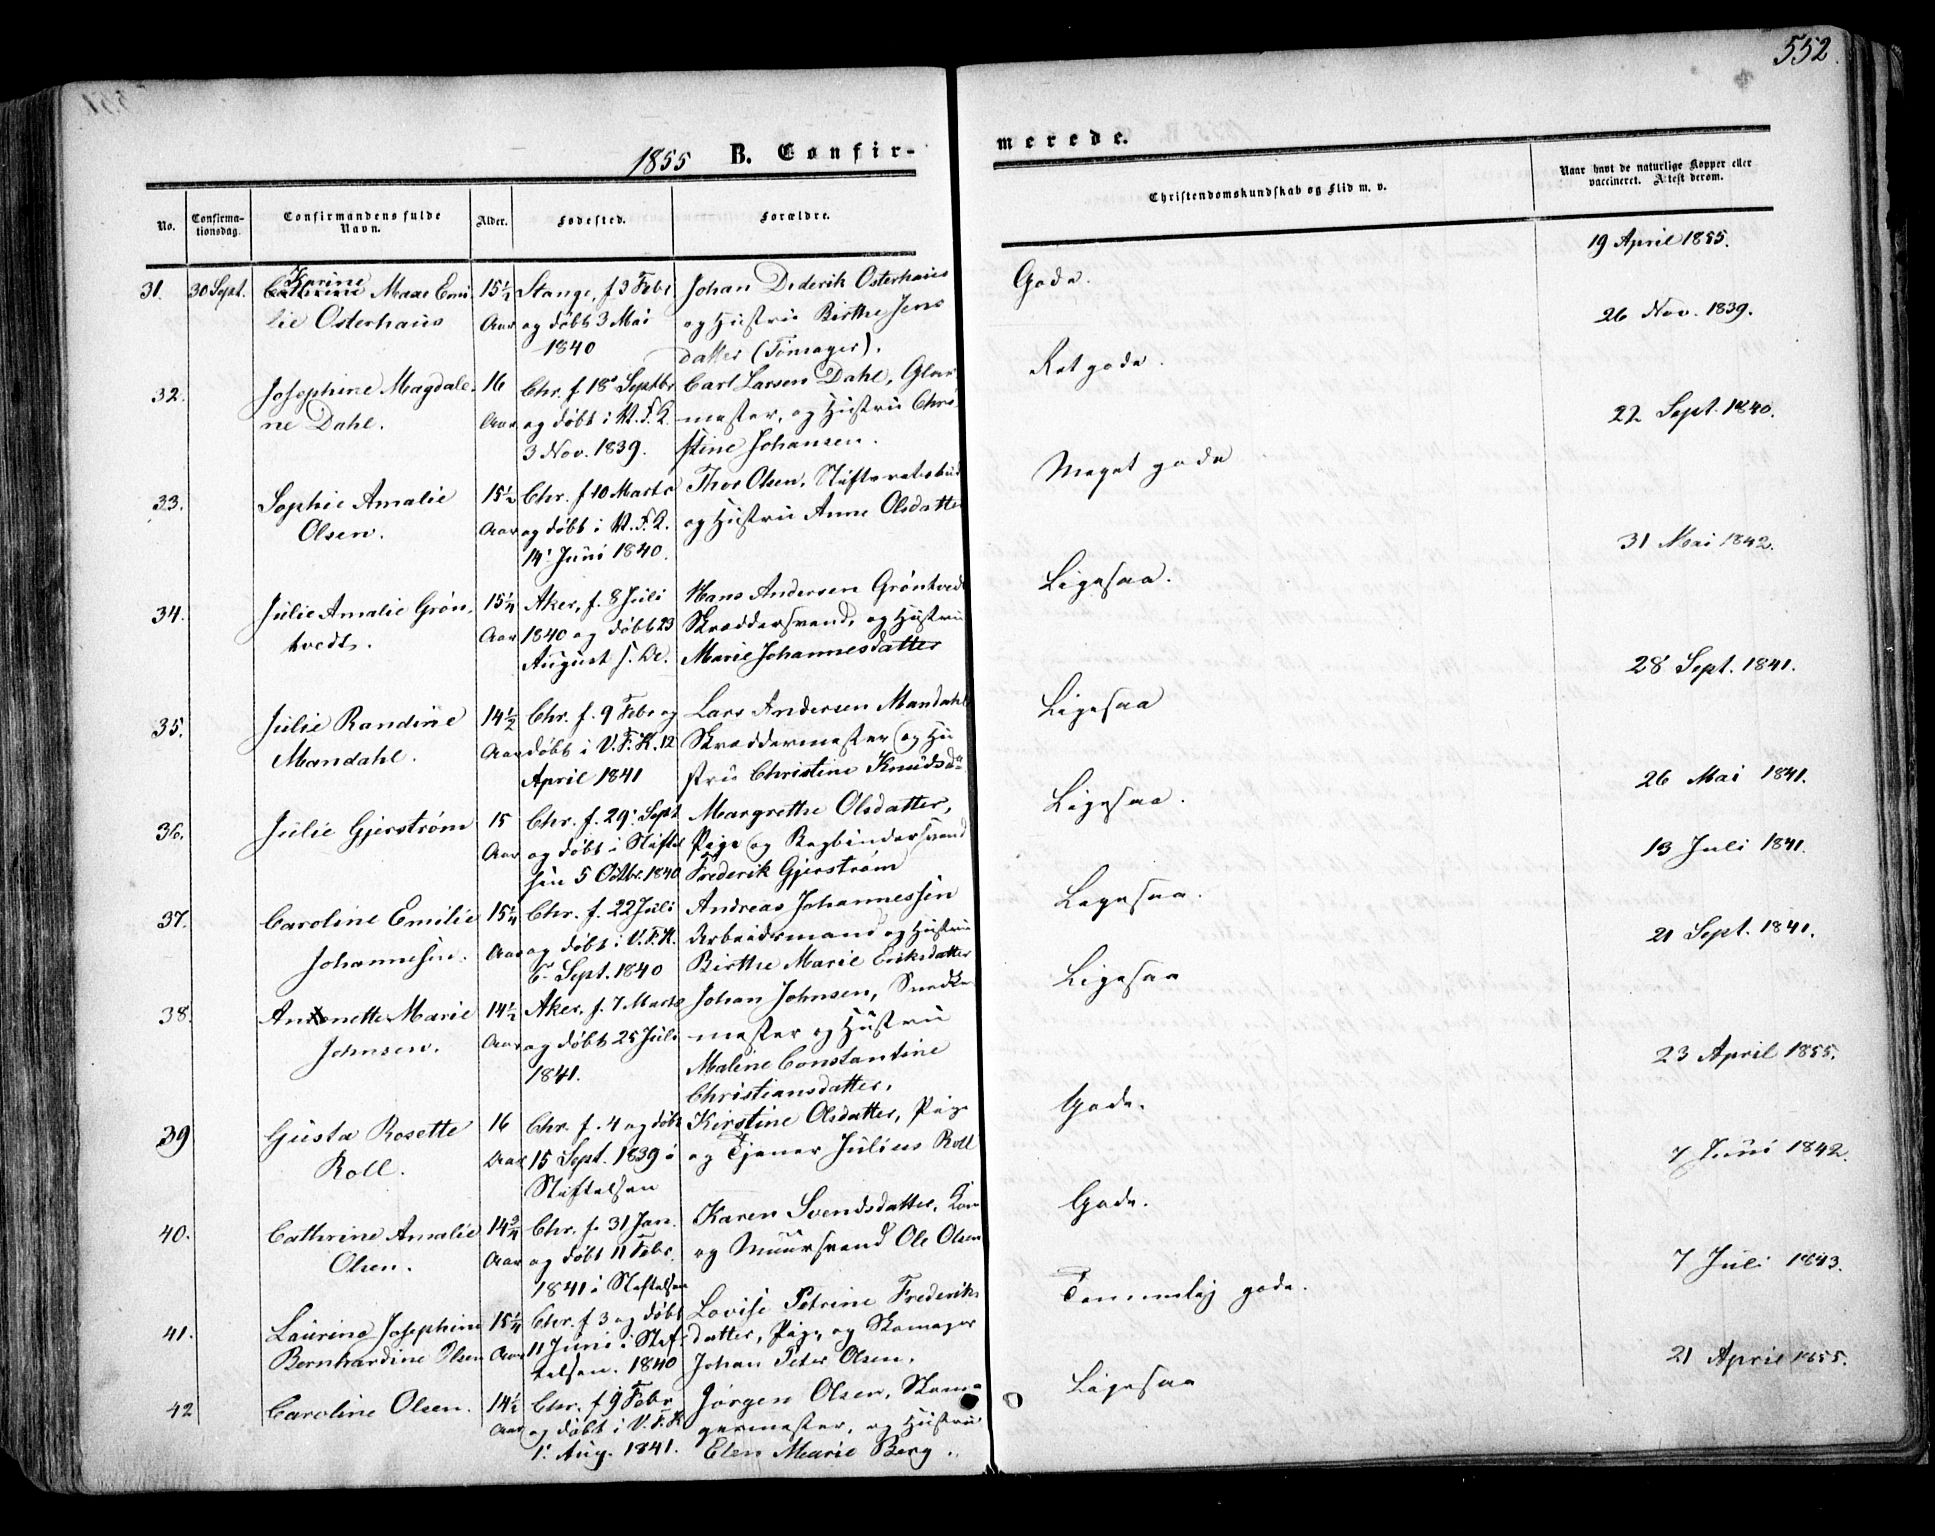 552.
1855 B. Confir-
merede.
No.
Confirma-
tionsdag.
Confirmandens fulde
Navn.
Alder.
Fødested.
Forældre.
Christendomskundskab og Flid m. v.
Naar havt de naturlige Kopper eller
vaccineret. Attest derom.
31. 30 Sept. Maae Emi
lie Osterhaus
15½
Aar
Stange, f 3 Febr
og døbt 3 Mai
1840
Johan Diderik Osterhaus
og Hustru Birthe Jens
datter
Gode.
19 April 1855.
32. Josephine Magdale-
ne Dahl.
16
Aar
Chr. f. 18 Septbr
og døbt i V. F. K.
3 Nov. 1839.
Carl Larsen Dahl, Glar
mester, og Hustru Chri
stine Johansen.
Ret gode.
26 Nov. 1839.
33. Sophie Amalie
Olsen.
15½
Aar
Chr. f 10 Marts
og døbt i V. F. K.
14 Juni 1840.
Thor Olsen, Stiftsretsbud
og Hustru Anne Olsdatter
Meget gode
22 Sept. 1840.
34. Julie Amalie Grøn-
tvedt.
15¼
Aar
Aker, f. 8 Juli
1840 og døbt 23
August s. A.
Hans Andersen Grøntvedt
Skræddersvend, og Hustru
Marie Johannesdatter
Ligesaa.
31 Mai 1842.
35. Julie Randine
Mandahl.
14½
Aar
Chr. f. 9 Febr og
døbt i V. F. K. 12
April 1841
Lars Andersen Mandahl
Skræddermester og Hu
stru Christine Knudsd-
Ligesaa
28 Sept. 1841.
36. Julie Gjerstrøm
15
Aar
Chr. f. 29 Sept
og døbt i Stiftel
sen 5 Octbr. 1840
Margrethe Olsdatter,
Pige og Bogbindersvend
Frederik Gjerstrøm
Ligesaa.
26 Mai 1841.
37. Caroline Emilie
Johannesen.
15¼
Aar
Chr. f. 22 Juli
og døbt i V. F. K.
6 Sept. 1840
Andreas Johannessen
Arbeidsmand og Hustru
Birthe Marie Eriksdatter
Ligesaa.
13 Juli 1841.
38. Antonette Marie
Johnsen.
14½
Aar
Aker, f. 7 Marts
og døbt 25 Juli
1841.
Johan Johnsen, Snedker
mester og Hustru
Maline Constantine
Christiansdatter.
Ligesaa
21 Sept. 1841.
39 Gusta Rosette
Roll.
16
Aar
Chr. f. 4 og døbt
15 Sept. 1839 i
Stiftelsen
Kirstine Olsdatter, Pige
og Tjener Julius Roll
Gode.
23 April 1855.
40. Cathrine Amalie
Olsen.
14¾
Aar
Chr. f. 31 Jan.
og døbt 11 Febr.
1841 i Stiftelsen
Karen Svendsdatter,
og Muursvend Ole Olsen
Gode.
7 Juni 1842.
41. Laurine Josephine
Bernhardine Olsen
15¼
Aar
Chr. f 3 og døbt
11 Juni i Stif-
telsen. 1840
Lovise Petrine Frederiks
datter, Pige, og Skomager
Johan Peter Olsen.
Temmelig gode.
7 Juli 1843.
42 Caroline Olsen.
14½
Aar
Chr. f 9 Febr
og døbt i V. F. K
1 Aug. 1841.
Jørgen Olsen, Skoma-
germester, og Hustru
Elen Marie Berg.
Ligesaa
21 April 1855.